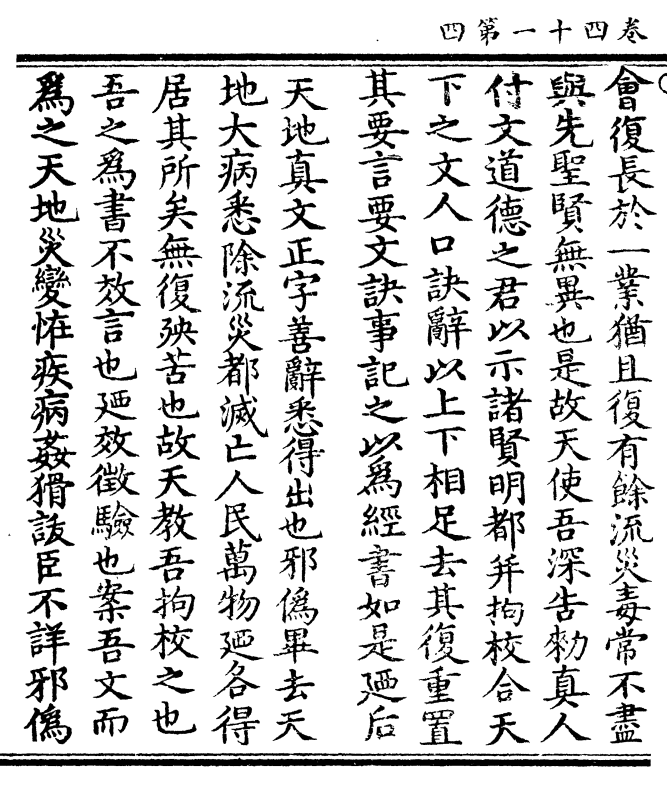 卷四十一第四
會復長於一業猶且復有餘流災毒常不盡
與先聖賢無異也是故天使吾深告勑真人
付文道德之君以示諸賢明都并拘校合天
下之文人口訣辭以上下相足去其復重置
其要言要文訣事記之以爲經書如是廼后
天地真文正字善辭悉得出也邪僞畢去天
地大病悉除流災都滅亡人民萬物廼各得
居其所矣無復殃苦也故天教吾拘校之也
吾之爲書不效言也廼效徵驗也案吾文而
爲之天地災變恠疾病姦猾訞臣不詳邪僞